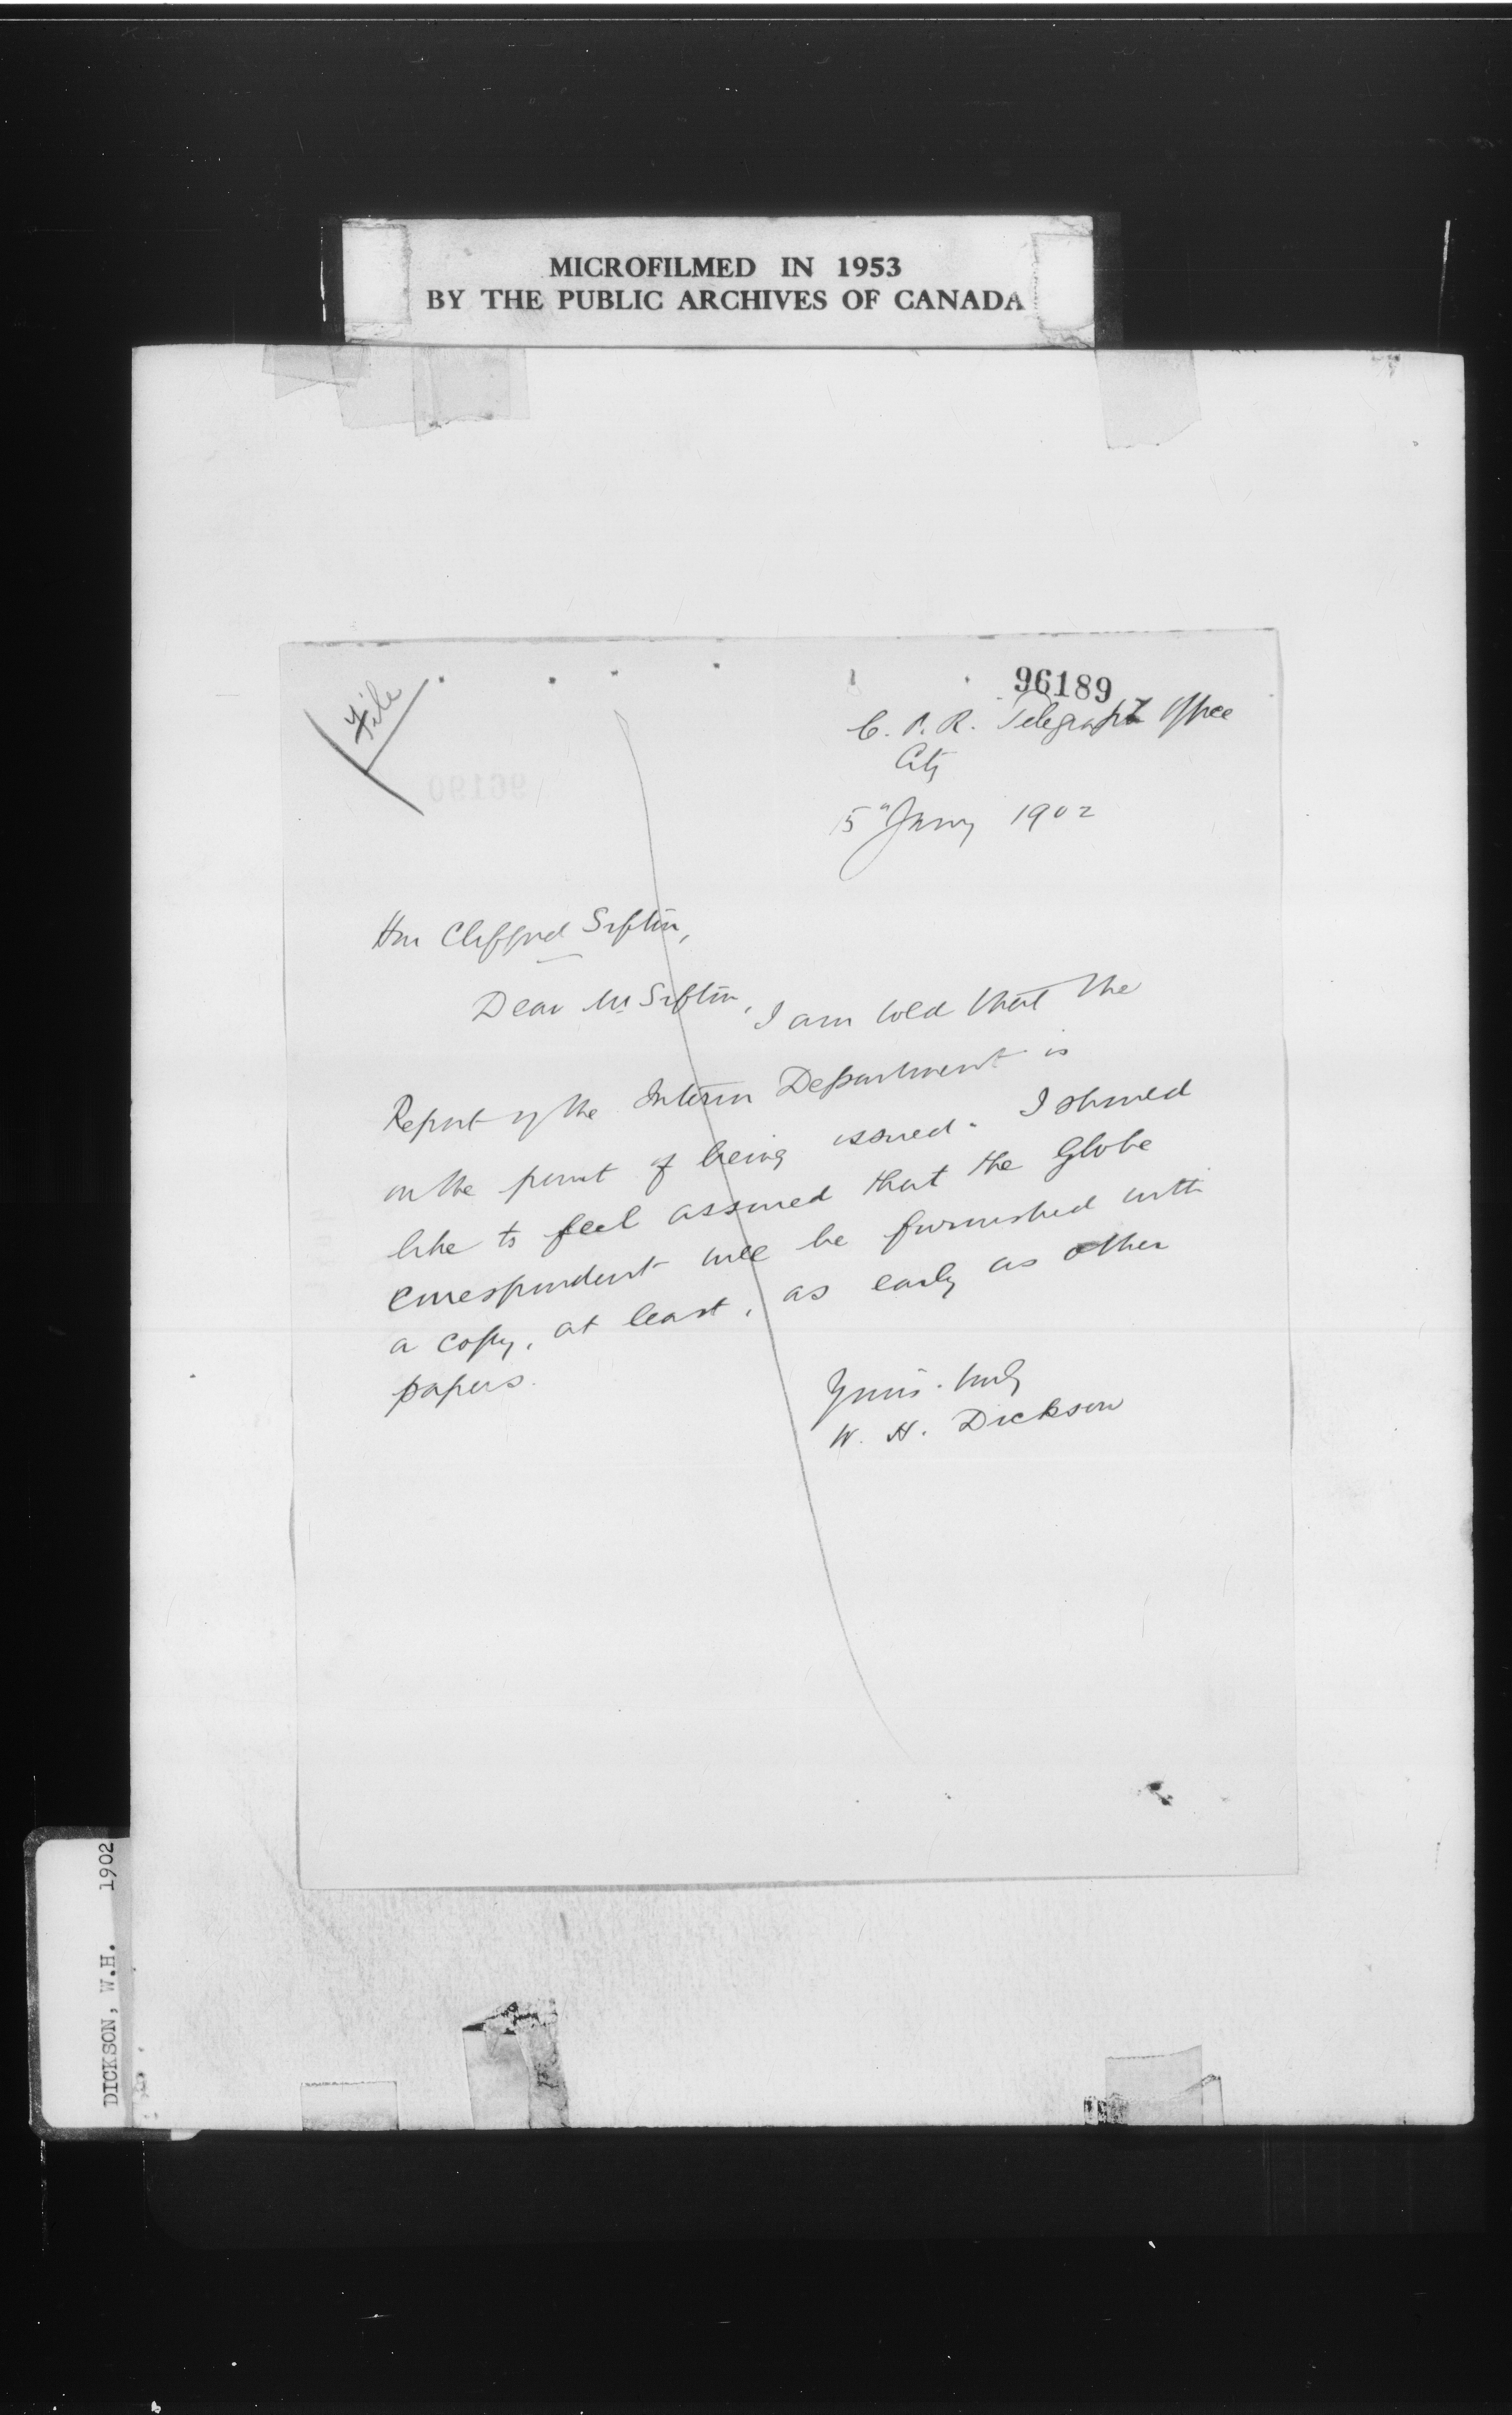 MICROFILMED IN 1953
BY THE PUBLIC ARCHIVES OF CANADA
File
96189
C. P. R. Telegraph Office
City
5" Jany 1902
96190
Hon Clifford Sifton,
Dear Mr Sifton, I am told that the
Report of the Interior Department is
on the point of being issued. I should
like to feel assured that the Globe
correspondent will be furnished with
a copy, at least, as early as other
papers.
Yours truly
W. H. Dickson
DICKSON, W.H. 1902